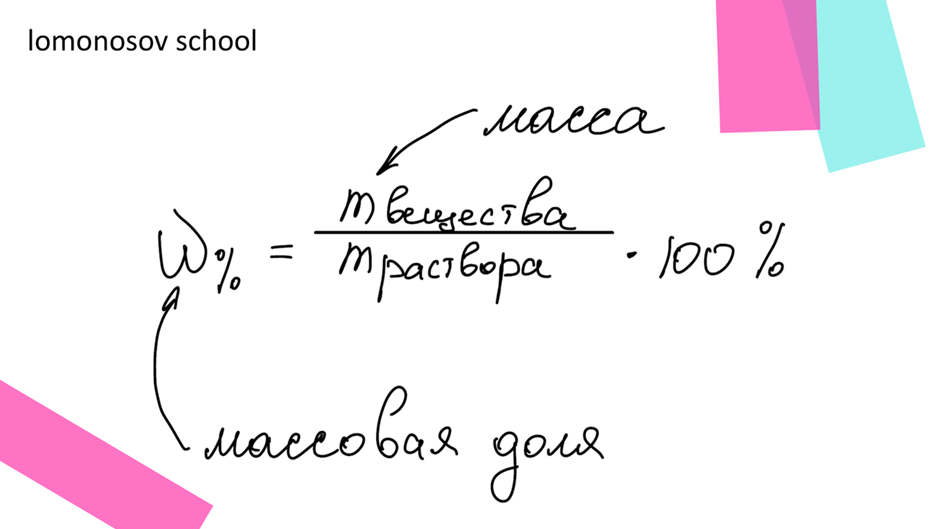 lomonosov school
масса
ω% = m вещества / m раствора · 100 %
массовая доля